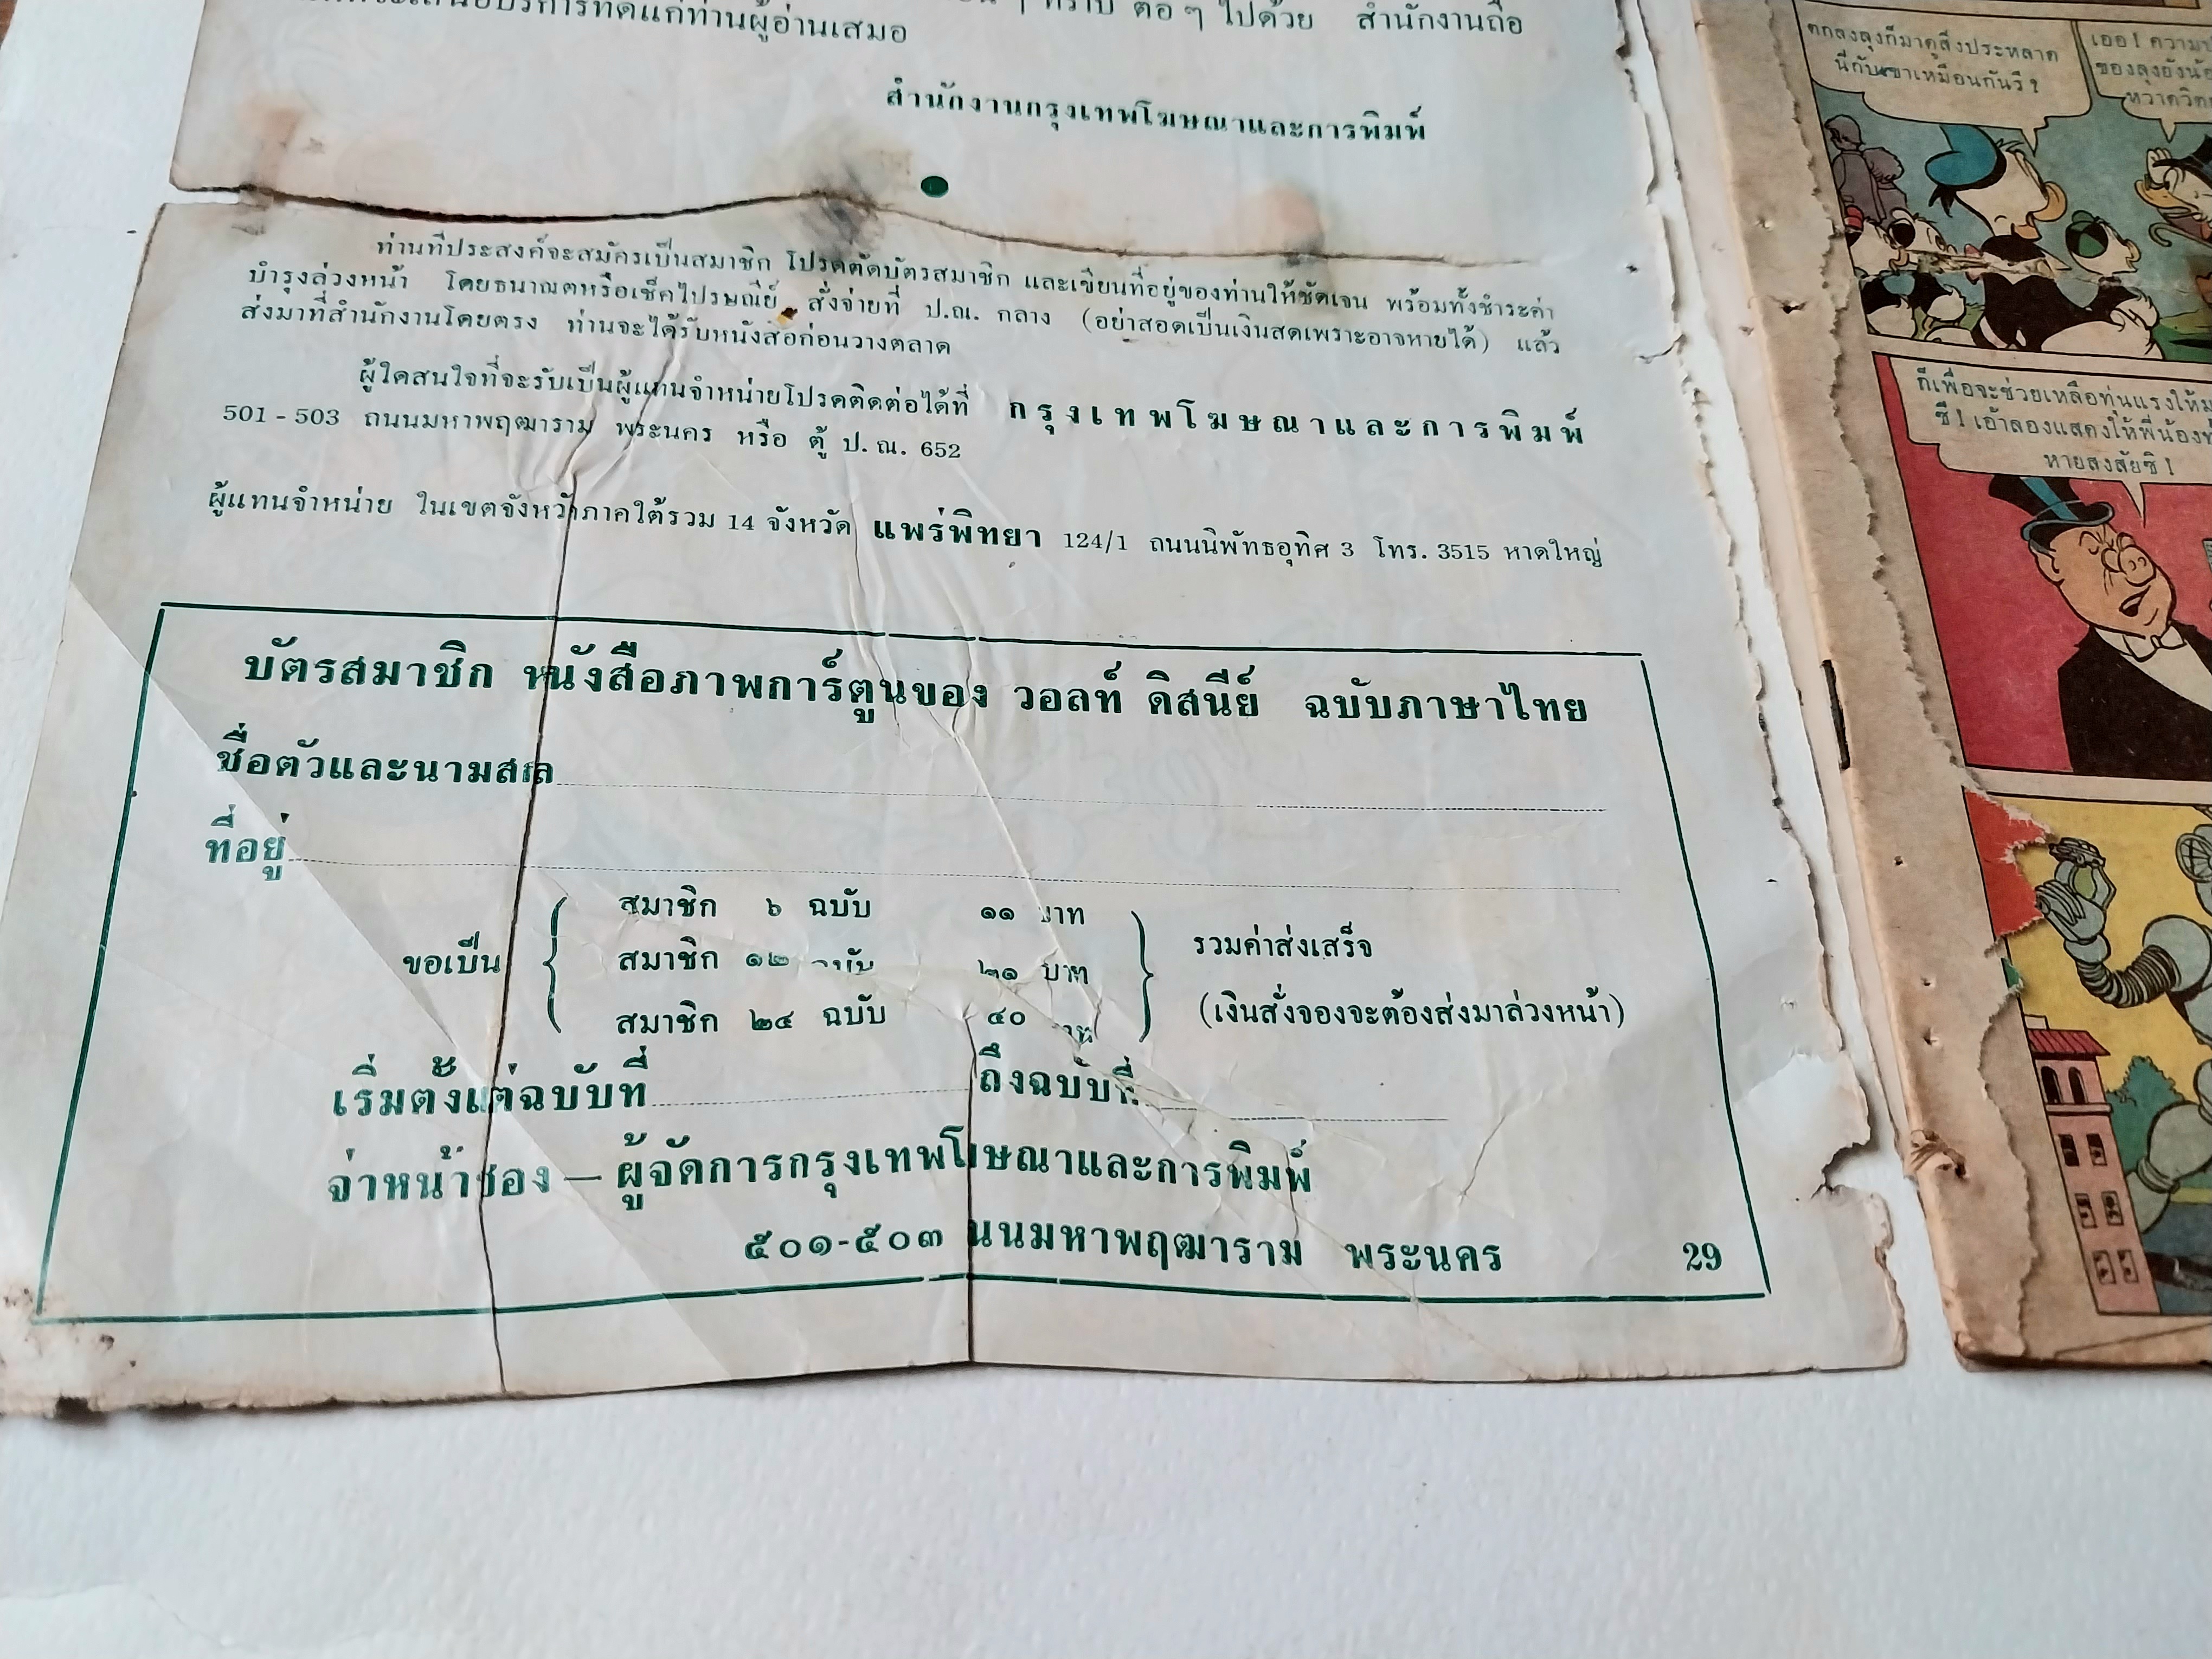 ต่อ ๆ ไปด้วย สำนักงานถือ
แก่ท่านผู้อ่านเสมอ
สำนักงานกรุงเทพโฆษณาและการพิมพ์
ท่านที่ประสงค์จะสมัครเป็นสมาชิก โปรดตัดบัตรสมาชิก และเขียนที่อยู่ของท่านให้ชัดเจน พร้อมทั้งชำระค่า
บำรุงล่วงหน้า โดยธนาณตหรือเช็คไปรษณีย์ สั่งจ่ายที่ ป.ณ. กลาง (อย่าสอดเป็นเงินสดเพราะอาจหายได้) แล้ว
ส่งมาที่สำนักงานโดยตรง ท่านจะได้รับหนังสือก่อนวางตลาด
ผู้ใดสนใจที่จะรับเป็นผู้แทนจำหน่ายโปรดติดต่อได้ที่ กรุงเทพโฆษณาและการพิมพ์
501 - 503 ถนนมหาพฤฒาราม พระนคร หรือ ตู้ ป.ณ. 652
ผู้แทนจำหน่าย ในเขตจังหวัดภาคใต้รวม 14 จังหวัด แพร่พิทยา 124/1 ถนนนิพัทธอุทิศ 3 โทร. 3515 หาดใหญ่
บัตรสมาชิก หนังสือภาพการ์ตูนของ วอลท์ ดิสนีย์ ฉบับภาษาไทย
ชื่อตัวและนามสกุล
ที่อยู่
ขอเป็น
สมาชิก ๖ ฉบับ ๑๑ บาท
สมาชิก ๑๒ ฉบับ ๒๑ บาท
สมาชิก ๒๔ ฉบับ ๔๐ บาท
รวมค่าส่งเสร็จ
(เงินสั่งจองจะต้องส่งมาล่วงหน้า)
เริ่มตั้งแต่ฉบับที่ ถึงฉบับที่
จ่าหน้าซอง — ผู้จัดการกรุงเทพโฆษณาและการพิมพ์
๕๐๑-๕๐๓ ถนนมหาพฤฒาราม พระนคร 29
ตกลงลุงก็มาดูสิ่งประหลาด
นี่กับเขาเหมือนกันรึ?
เออ! ความ
ของลุงยังน้อ
กว่าดวิต
ก็เพื่อจะช่วยเหลือทุ่นแรงให้
ซี! เอ้าลองแสดงให้พี่น้อง
หายสงสัยซิ!